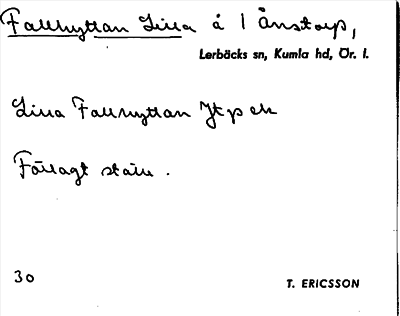 Fallhyttan Lilla å 1 Ånstorp,
Lerbäcks sn, Kumla hd, Ör. l.
Lilla Fallhyttan Jtp ek
Förlagt ställe .
30
T. ERICSSON